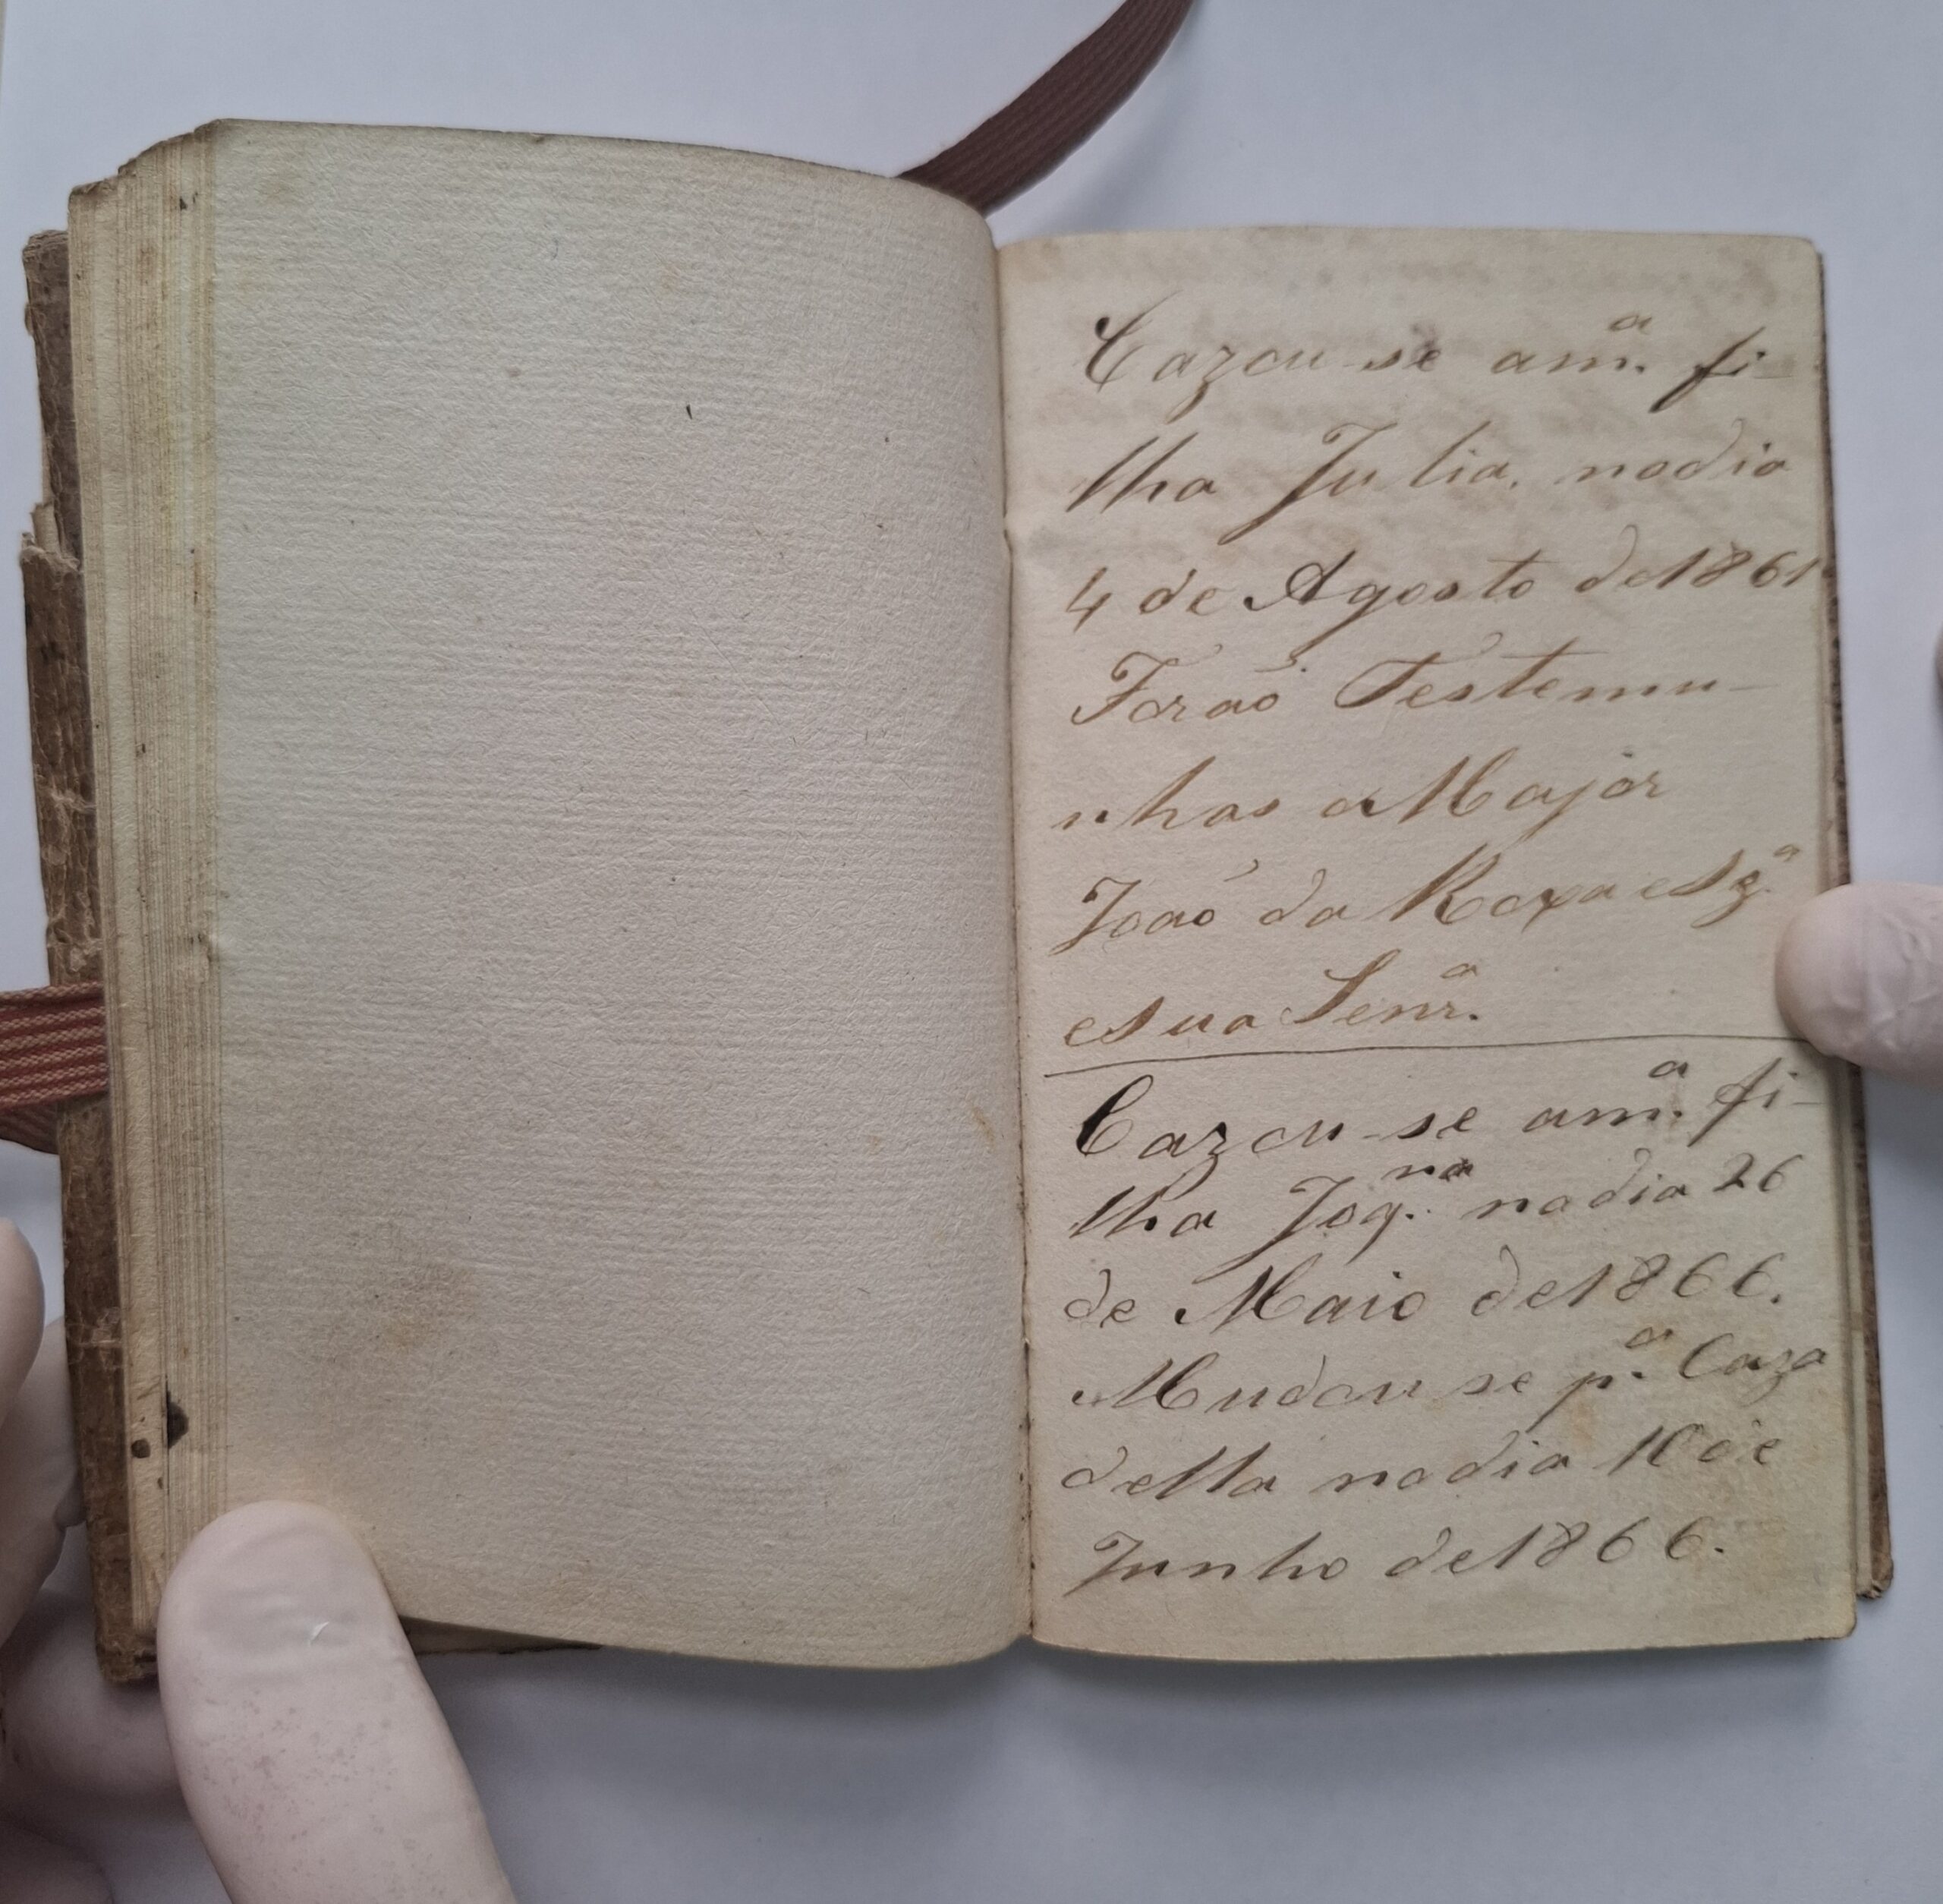 Cazou-se a m.ª fi-
lha Julia, no dia
4 de Agosto de 1861
Foraõ Testemu-
nhas o Major
Joaõ da Roxa e Sz.ª
e Sua Senr.ª
Cazou-se a m.ª fi-
lha Joq.na no dia 26
de Maio de 1866.
Mudou se p.ª Caza
della no dia 10 de
Junho de 1866.